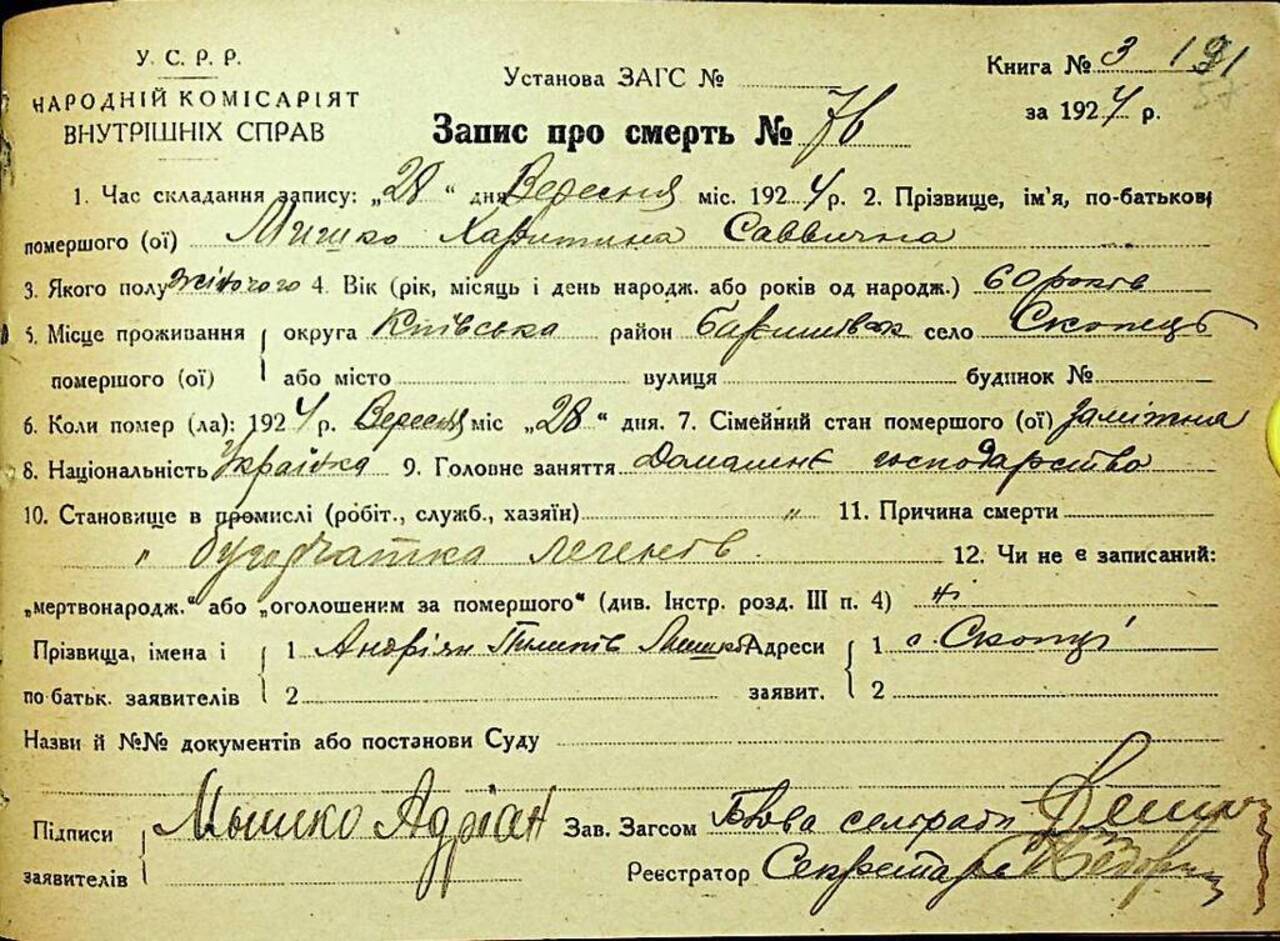 У. С. Р. Р.
НАРОДНІЙ КОМІСАРІЯТ
ВНУТРІШНІХ СПРАВ
Установа ЗАГС №
Запис про смерть № 76
Книга № 3 191
за 1924 р.
1. Час складання запису: „28“ дня Вересня міс. 1924 р. 2. Прізвище, ім'я, по-батькові
помершого (ої) Мишко Харитина Саввична
3. Якого полу жіночого 4. Вік (рік, місяць і день народж. або років од народж.) 60 років
5. Місце проживання округа Київська район Баришівськ село Скопець
помершого (ої) або місто вулиця будинок №
6. Коли помер (ла): 1924 р. Вересня міс „28“ дня. 7. Сімейний стан помершого (ої) заміжня
8. Національність Українка 9. Головне заняття Домашнє господарство
10. Становище в промислі (робіт., служб., хазяїн) „ 11. Причина смерти
легенів. 12. Чи не є записаний:
„мертвонародж.“ або „оголошеним за помершого“ (див. Інстр. розд. III п. 4) ні
Прізвища, імена і 1 Андріян Пилипів Мишко Адреси 1 с. Скопці
по батьк. заявителів 2 заявит. 2
Назви й №№ документів або постанови Суду
Підписи Мышко Адріан Зав. Загсом Голова сельради
заявителів Реєстратор Секретарь